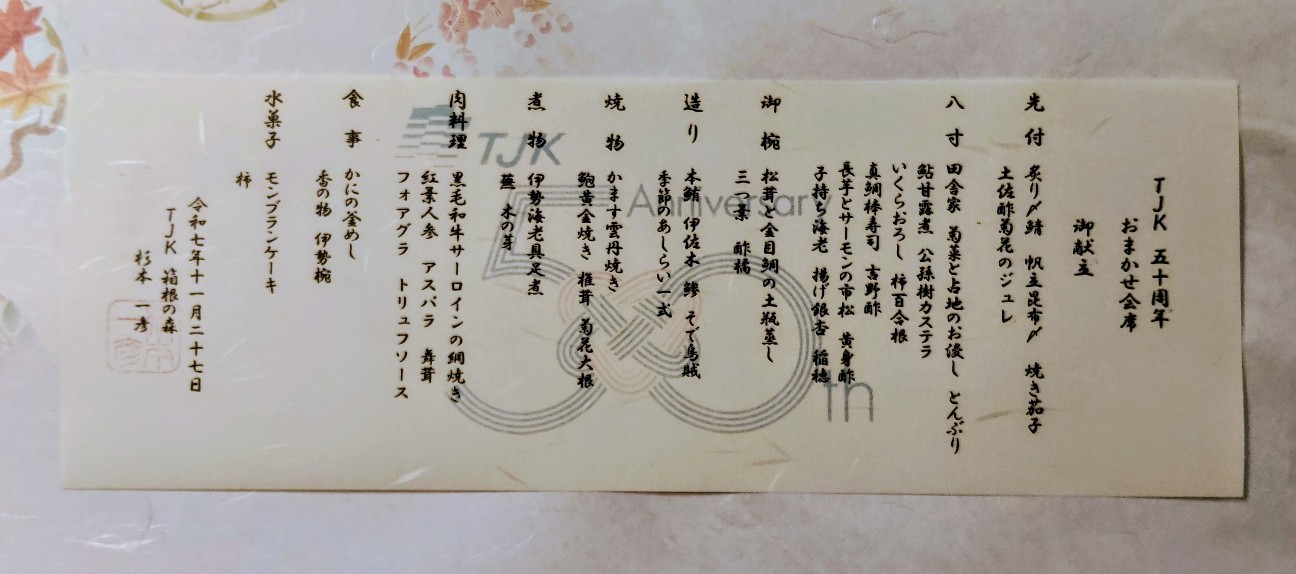 TJK 五十周年
おまかせ会席
御献立
先付 炙り〆鯖 帆立昆布〆 焼き茄子
土佐酢菊花のジュレ
八寸 田舎家 菊菜と占地のお浸し とんぶり
鮎甘露煮 公孫樹カステラ
いくらおろし 柿百合根
真鯛棒寿司 吉野酢
長芋とサーモンの市松 黄身酢
子持ち海老 揚げ銀杏 稲穂
御椀 松茸と金目鯛の土瓶蒸し
三つ葉 酢橘
造り 本鮪 伊佐木 鰺 そで烏賊
季節のあしらい一式
焼物 かます雲丹焼き
鮑黄金焼き 椎茸 菊花大根
煮物 伊勢海老具足煮
蕪 木の芽
肉料理 黒毛和牛サーロインの網焼き
紅葉人参 アスパラ 舞茸
フォアグラ トリュフソース
食事 かにの釜めし
香の物 伊勢椀
水菓子 モンブランケーキ
柿
令和七年十一月二十七日
TJK 箱根の森
杉本 一彦
TJK
50th
Anniversary